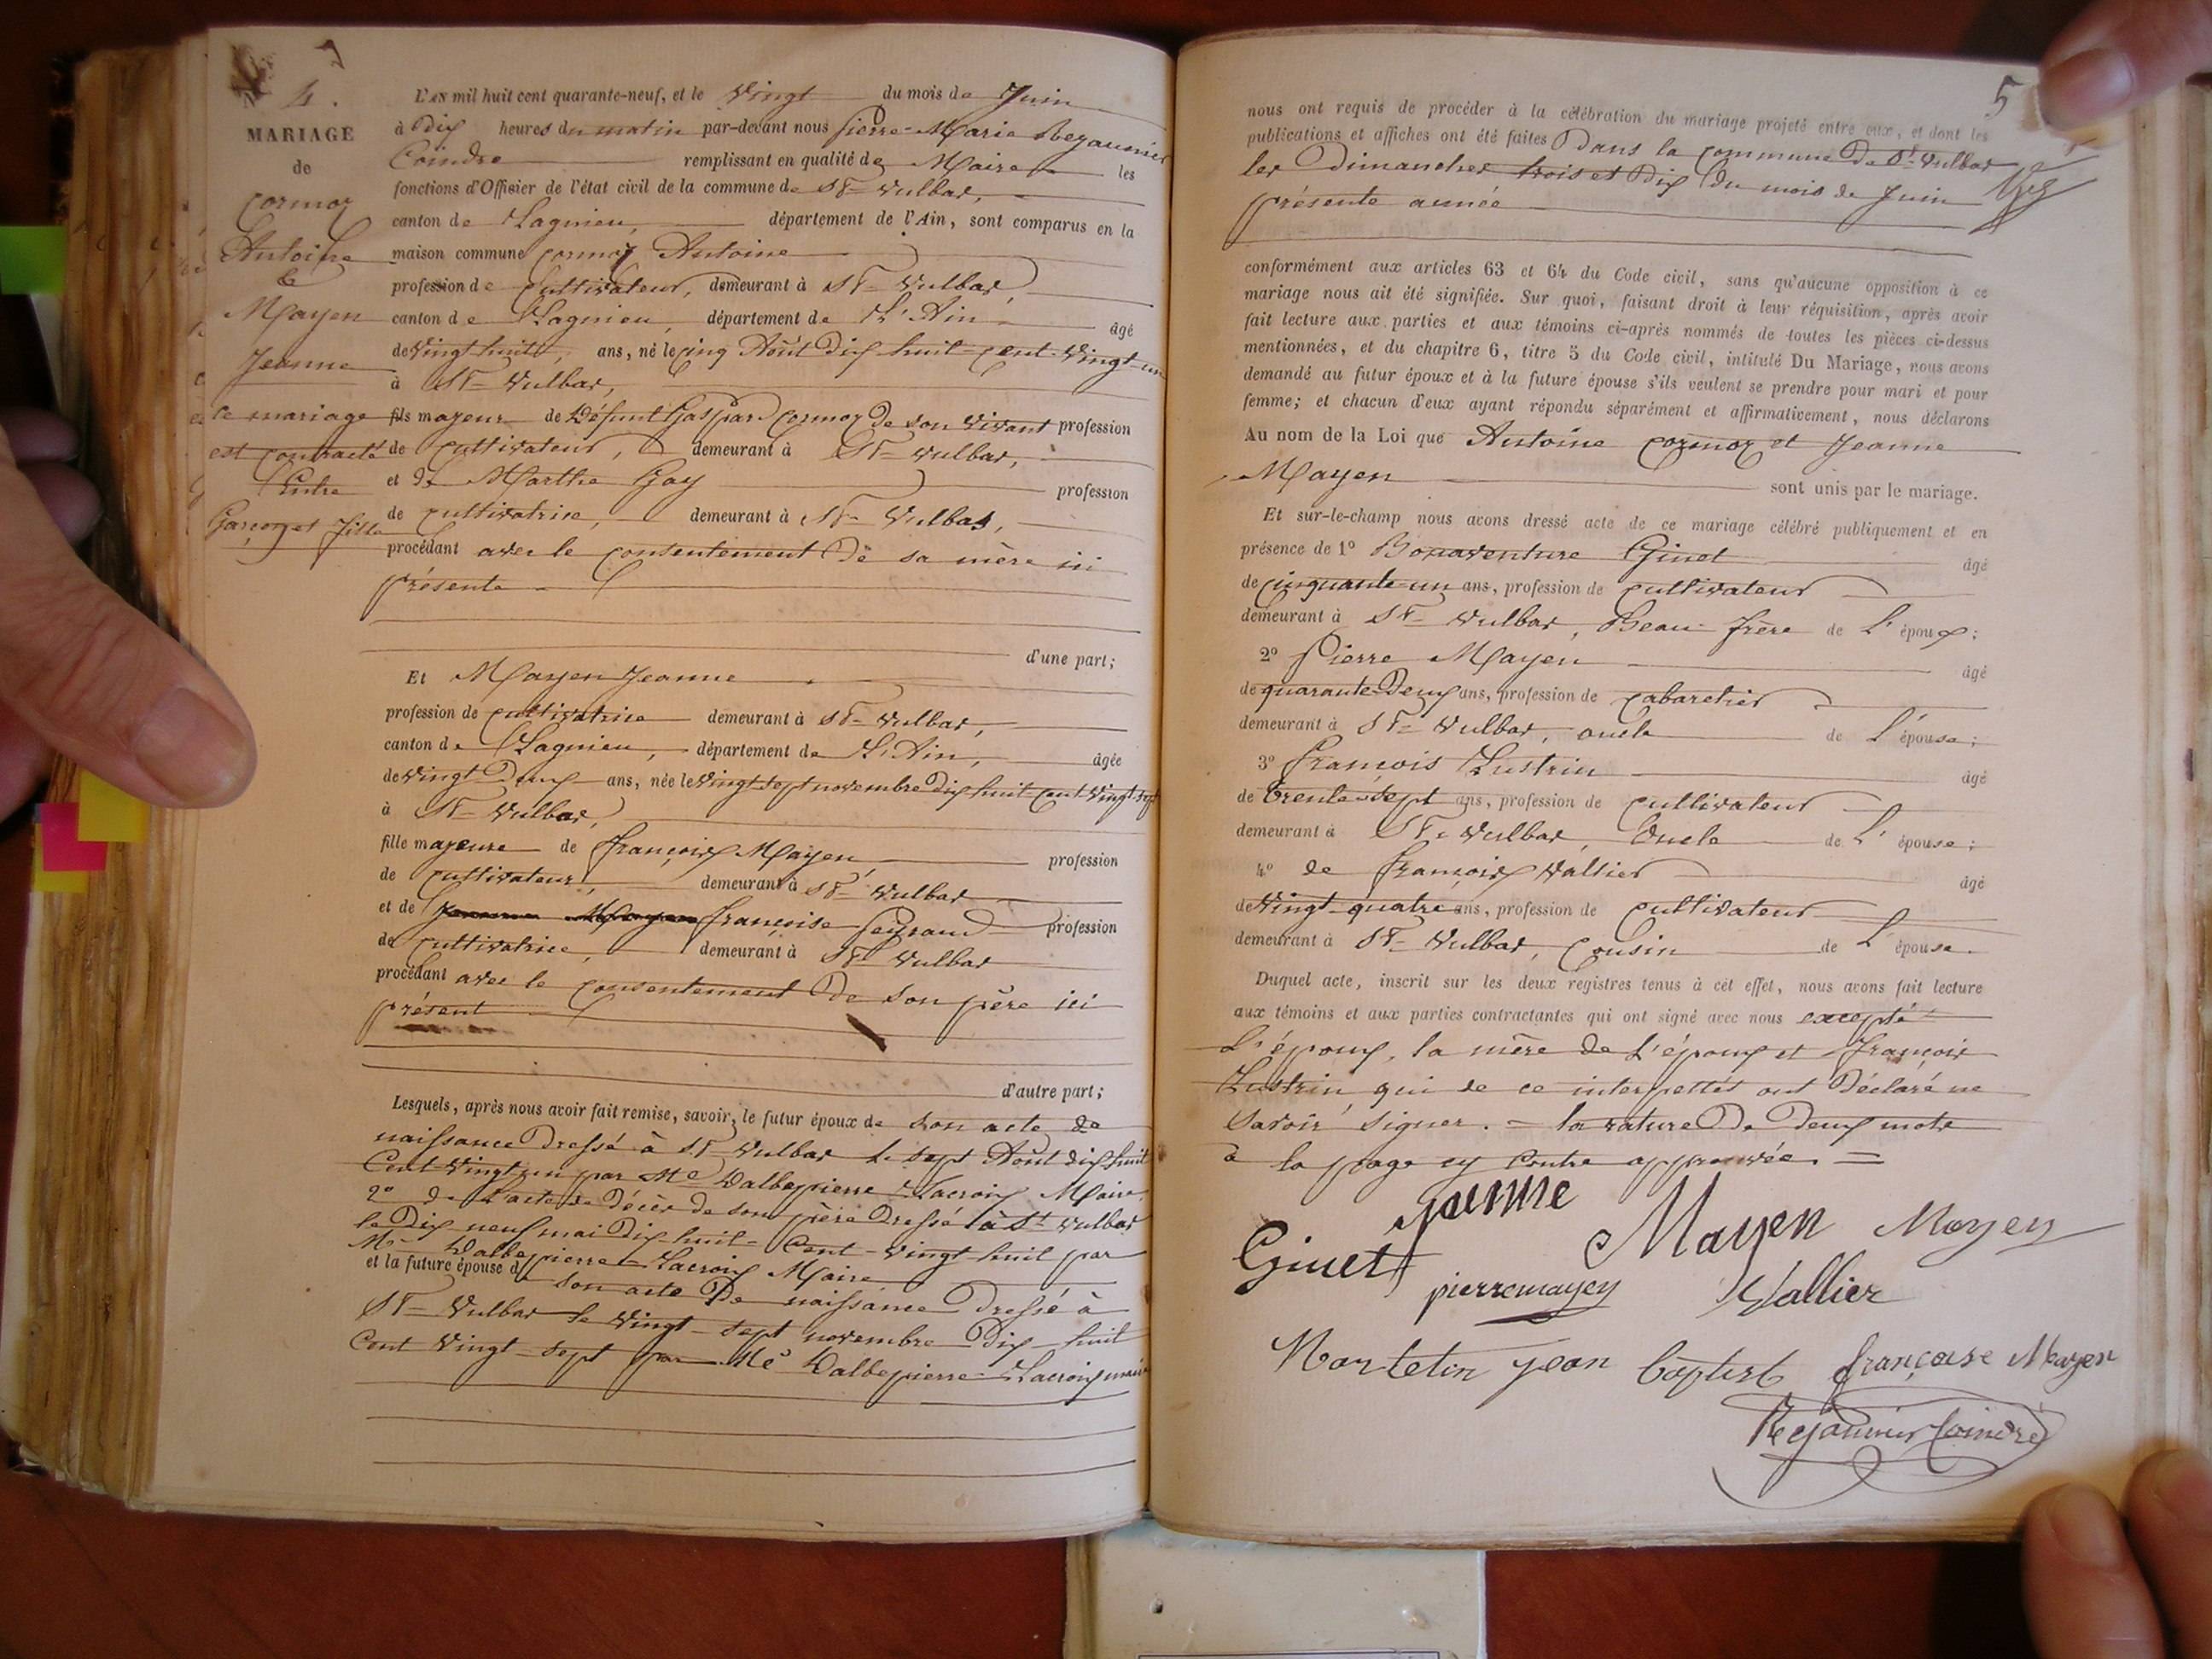 4.
MARIAGE
de
Cormoz
Antoine
&
Mayen
Jeanne
ce mariage
est contracté
Entre
Garçon et fille
L'AN mil huit cent quarante-neuf, et le Vingt du mois de Juin
à Dix heures du matin par-devant nous Pierre-Marie Rejaunier
Coindre remplissant en qualité de Maire les
fonctions d'Officier de l'état civil de la commune de St Vulbas,
canton de Lagnieu, département de l'Ain, sont comparus en la
maison commune Cormoz Antoine
profession de Cultivateur, demeurant à St Vulbas,
canton de Lagnieu, département de L'Ain âgé
de Vingt huit, ans, né le cinq Août Dix huit-cent-Vingt-un
à St Vulbas,
fils majeur de Défunt Gaspard Cormoz De son vivant profession
de Cultivateur, demeurant à St Vulbas,
et de Marthe Gay profession
de cultivatrice, demeurant à St Vulbas,
procédant avec le consentement De sa mère ici
présente
d'une part;
Et Mayen Jeanne
profession de cultivatrice demeurant à St Vulbas,
canton de Lagnieu, département de L'Ain, âgée
de Vingt Deux ans, née le Vingt-sept novembre Dix huit-cent Vingt-sept
à St Vulbas,
fille majeure de François Mayen, profession
de cultivateur, demeurant à St Vulbas
et de Françoise Peyraud profession
de cultivatrice, demeurant à St Vulbas
procédant avec le consentement De son père ici
présent
d'autre part;
Lesquels, après nous avoir fait remise, savoir, le futur époux de son acte de
naissance Dressé à St Vulbas le sept Août dix huit
Cent-Vingt un par Me Dalbepierre-Lacroix Maire,
2º de l'acte de Décès de son père Dressé à St Vulbas
le Dix neuf mai Dix-huit-Cent-Vingt-huit par
Me Dalbepierre-Lacroix Maire
et la future épouse de son acte De naissance Dressé à
St Vulbas le Vingt-sept novembre Dix-huit
Cent Vingt-sept par Me Dalbepierre-Lacroix maire
5
nous ont requis de procéder à la célébration du mariage projeté entre eux, et dont les
publications et affiches ont été faites Dans la commune De St Vulbas
les Dimanches trois et Dix du mois de Juin
présente année
conformément aux articles 63 et 64 du Code civil, sans qu'aucune opposition à ce
mariage nous ait été signifiée. Sur quoi, faisant droit à leur réquisition, après avoir
fait lecture aux parties et aux témoins ci-après nommés de toutes les pièces ci-dessus
mentionnées, et du chapitre 6, titre 5 du Code civil, intitulé Du Mariage, nous avons
demandé au futur époux et à la future épouse s'ils veulent se prendre pour mari et pour
femme; et chacun d'eux ayant répondu séparément et affirmativement, nous déclarons
Au nom de la Loi que Antoine Cormoz et Jeanne
Mayen sont unis par le mariage.
Et sur-le-champ nous avons dressé acte de ce mariage célébré publiquement et en
présence de 1º Bonaventure Ginet âgé
de cinquante-un ans, profession de cultivateur
demeurant à St Vulbas, Beau-frère de L'époux;
2º Pierre Mayen âgé
de quarante-Deux ans, profession de cabaretier
demeurant à St Vulbas, oncle de L'épouse;
3º François Lustrin âgé
de trente-sept ans, profession de cultivateur
demeurant à St Vulbas, Oncle de L'épouse;
4º de François Vallier âgé
de Vingt-quatre ans, profession de cultivateur
demeurant à St Vulbas, Cousin de L'épouse.
Duquel acte, inscrit sur les deux registres tenus à cet effet, nous avons fait lecture
aux témoins et aux parties contractantes qui ont signé avec nous excepté
L'époux, la mère de L'époux et François
Lustrin, qui de ce interpellés ont Déclaré ne
savoir signer. = la rature De Deux mots
à la page cy contre approuvée. =
Jeanne Mayen Mayen
Ginet
pierre mayen Vallier
Martetin jean baptist françoise Mayen
Rejaunier Coindre